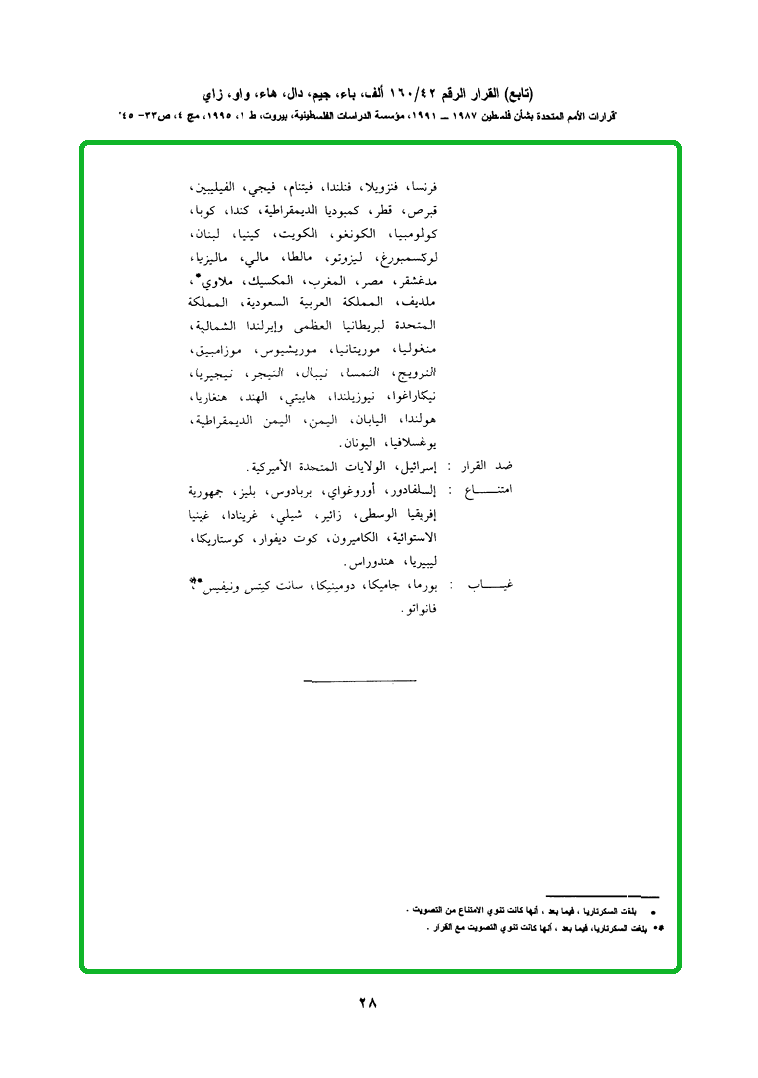 (تابع) القرار الرقم ١٦٠/٤٢ ألف، باء، جيم، دال، هاء، واو، زاي
"قرارات الأمم المتحدة بشأن فلسطين ١٩٨٧ ــ ١٩٩١، مؤسسة الدراسات الفلسطينية، بيروت، ط ١، ١٩٩٥، مج ٤، ص٣٣- ٤٥"
فرنسا، فنزويلا، فنلندا، فيتنام، فيجي، الفيليبين،
قبرص، قطر، كمبوديا الديمقراطية، كندا، كوبا،
كولومبيا، الكونغو، الكويت، كينيا، لبنان،
لوكسمبورغ، ليزوتو، مالطا، مالي، ماليزيا،
مدغشقر، مصر، المغرب، المكسيك، ملاوي*،
ملديف، المملكة العربية السعودية، المملكة
المتحدة لبريطانيا العظمى وإيرلندا الشمالية،
منغوليا، موريتانيا، موريشيوس، موزامبيق،
النرويج، النمسا، نيبال، النيجر، نيجيريا،
نيكاراغوا، نيوزيلندا، هاييتي، الهند، هنغاريا،
هولندا، اليابان، اليمن، اليمن الديمقراطية،
يوغسلافيا، اليونان.
ضد القرار : إسرائيل، الولايات المتحدة الأميركية.
امتنــــاع : إلسلفادور، أوروغواي، بربادوس، بليز، جمهورية
إفريقيا الوسطى، زائير، شيلي، غرينادا، غينيا
الاستوائية، الكاميرون، كوت ديفوار، كوستاريكا،
ليبيريا، هندوراس.
غيـــاب : بورما، جاميكا، دومينيكا، سانت كيتس ونيفيس**،
فانواتو.
* بلغت السكرتاريا ، فيما بعد ، أنها كانت تنوي الامتناع من التصويت .
** بلغت السكرتاريا، فيما بعد ، أنها كانت تنوي التصويت مع القرار .
٢٨